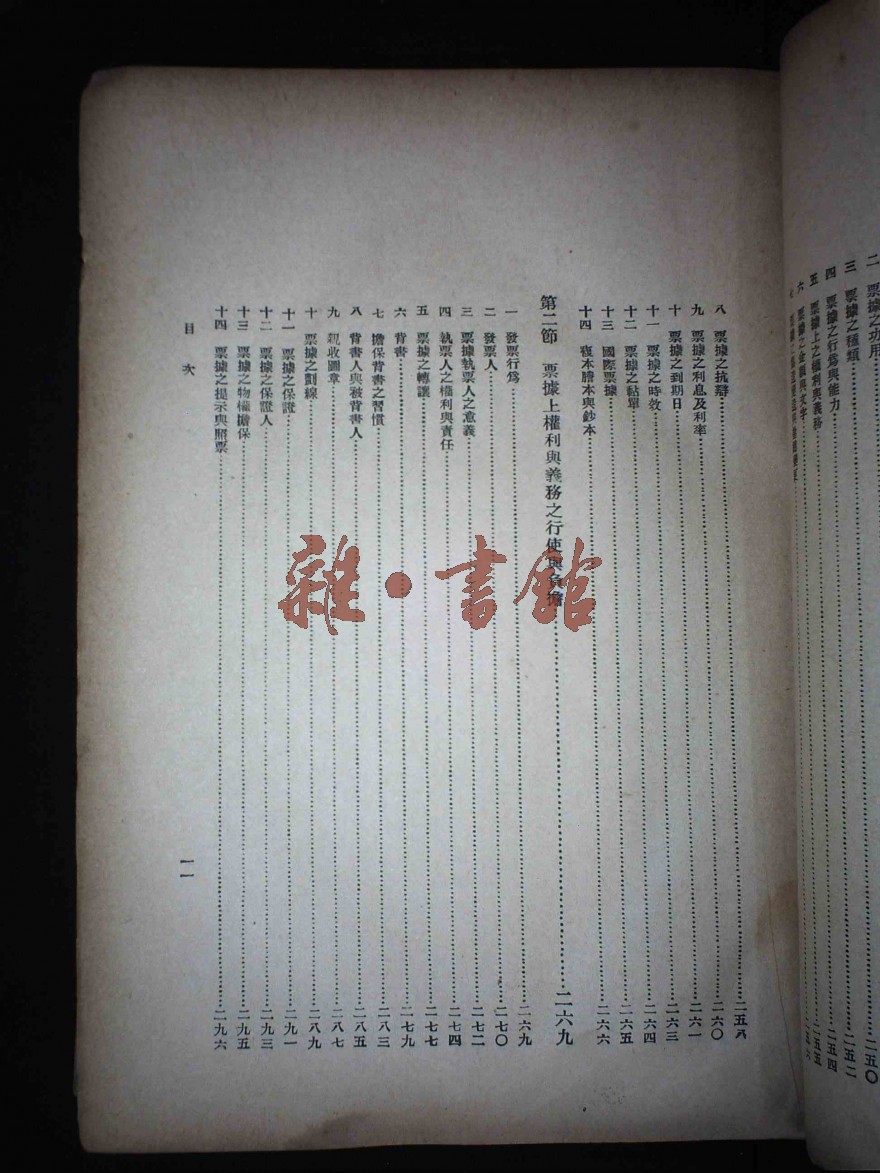 二 票據之功用……二五〇
三 票據之種類……二五二
四 票據之行為與能力……二五四
五 票據上之權利與義務……二五五
六 票據之金額與文字……二五六
八 票據之抗辯……二五八
九 票據之利息及利率……二六〇
十 票據之到期日……二六一
十一 票據之時效……二六三
十二 票據之黏單……二六四
十三 國際票據……二六五
十四 複本謄本與鈔本……二六六
第二節 票據上權利與義務之行使與負擔……二六九
一 發票行為……二六九
二 發票人……二七〇
三 票據執票人之意義……二七二
四 執票人之權利與責任……二七四
五 票據之轉讓……二七七
六 背書……二七九
七 擔保背書之習慣……二八三
八 背書人與被背書人……二八五
九 親收圖章……二八七
十 票據之劃線……二八九
十一 票據之保證……二九一
十二 票據之保證人……二九三
十三 票據之物權擔保……二九五
十四 票據之提示與照票……二九六
目次
一一
雜·書館